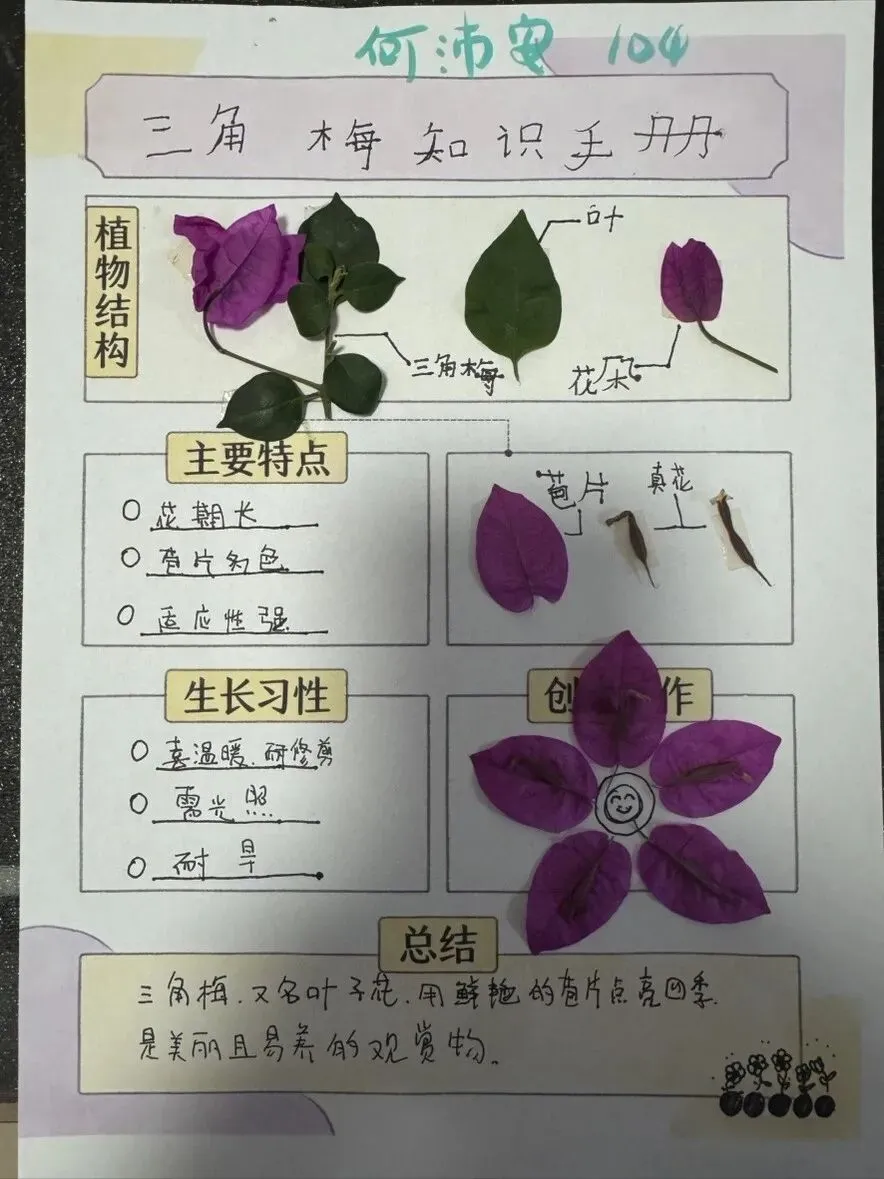 何沛安 104
三角梅知识手册
植物结构
叶
三角梅
花朵
主要特点
花期长
苞片多色
适应性强
苞片
真花
生长习性
喜温暖.耐修剪
需光照
耐旱
创 作
总结
三角梅.又名叶子花.用鲜艳的苞片点亮四季.
是美丽且易养的观赏物。